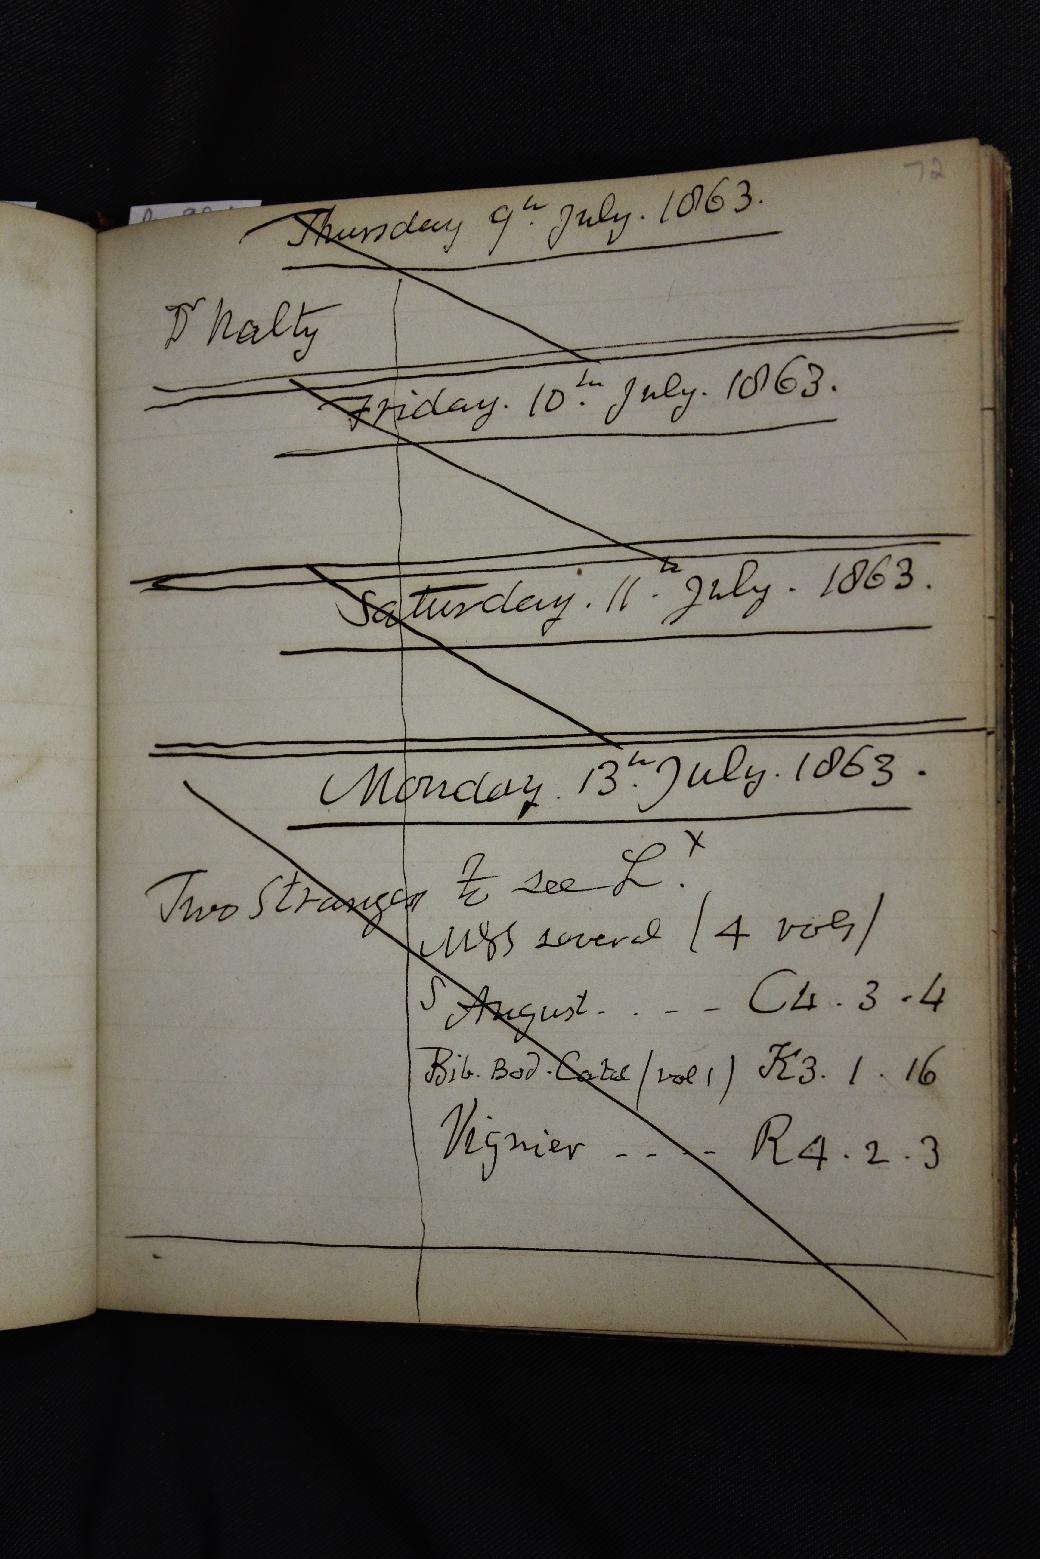 72
Thursday 9th July. 1863.
Dr Nalty
Friday. 10th July. 1863.
Saturday. 11th July. 1863.
Monday. 13th July. 1863.
Two Strangers to see L.x
MSS several (4 vols)
S August. . . - - C4. 3. 4
Bib. Bod. Catal (vol 1) K3. 1. 16
Vignier - - - - R4. 2. 3